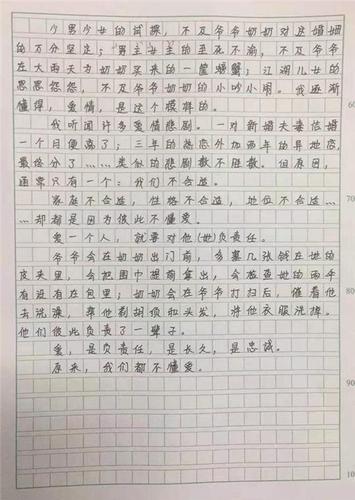 少男少女的试探，不及爷爷奶奶对这婚姻
的万分坚定；男主女主的至死不渝，不及爷爷
在大雨天为奶奶买来的一筐螃蟹；江湖儿女的
恩恩怨怨，不及爷爷奶奶的小吵小闹。我逐渐
懂得，爱情，是这个模样的。
60
我听闻许多爱情悲剧。一对新婚夫妻结婚
一个月便离了；三年的热恋外加两年的异地恋，
最终分了……类似的悲剧数不胜数。但原因，
通常只有一个：我们不合适。
家庭不合适，性格不合适，地位不合适……
70
…却都是因为彼此不懂爱。
爱一个人，就要对他(她)负责任。
爷爷会在奶奶出门前，多塞几张钱在她的
皮夹里，会把围巾提前拿出，会检查她的雨伞
有没有在包里；奶奶会在爷爷打扫后，催着他
80
去洗澡，帮他剃胡须和头发，将他衣服洗掉。
他们彼此负责了一辈子。
爱，是负责任，是长久，是忠诚。
原来，我们都不懂爱。
90
10